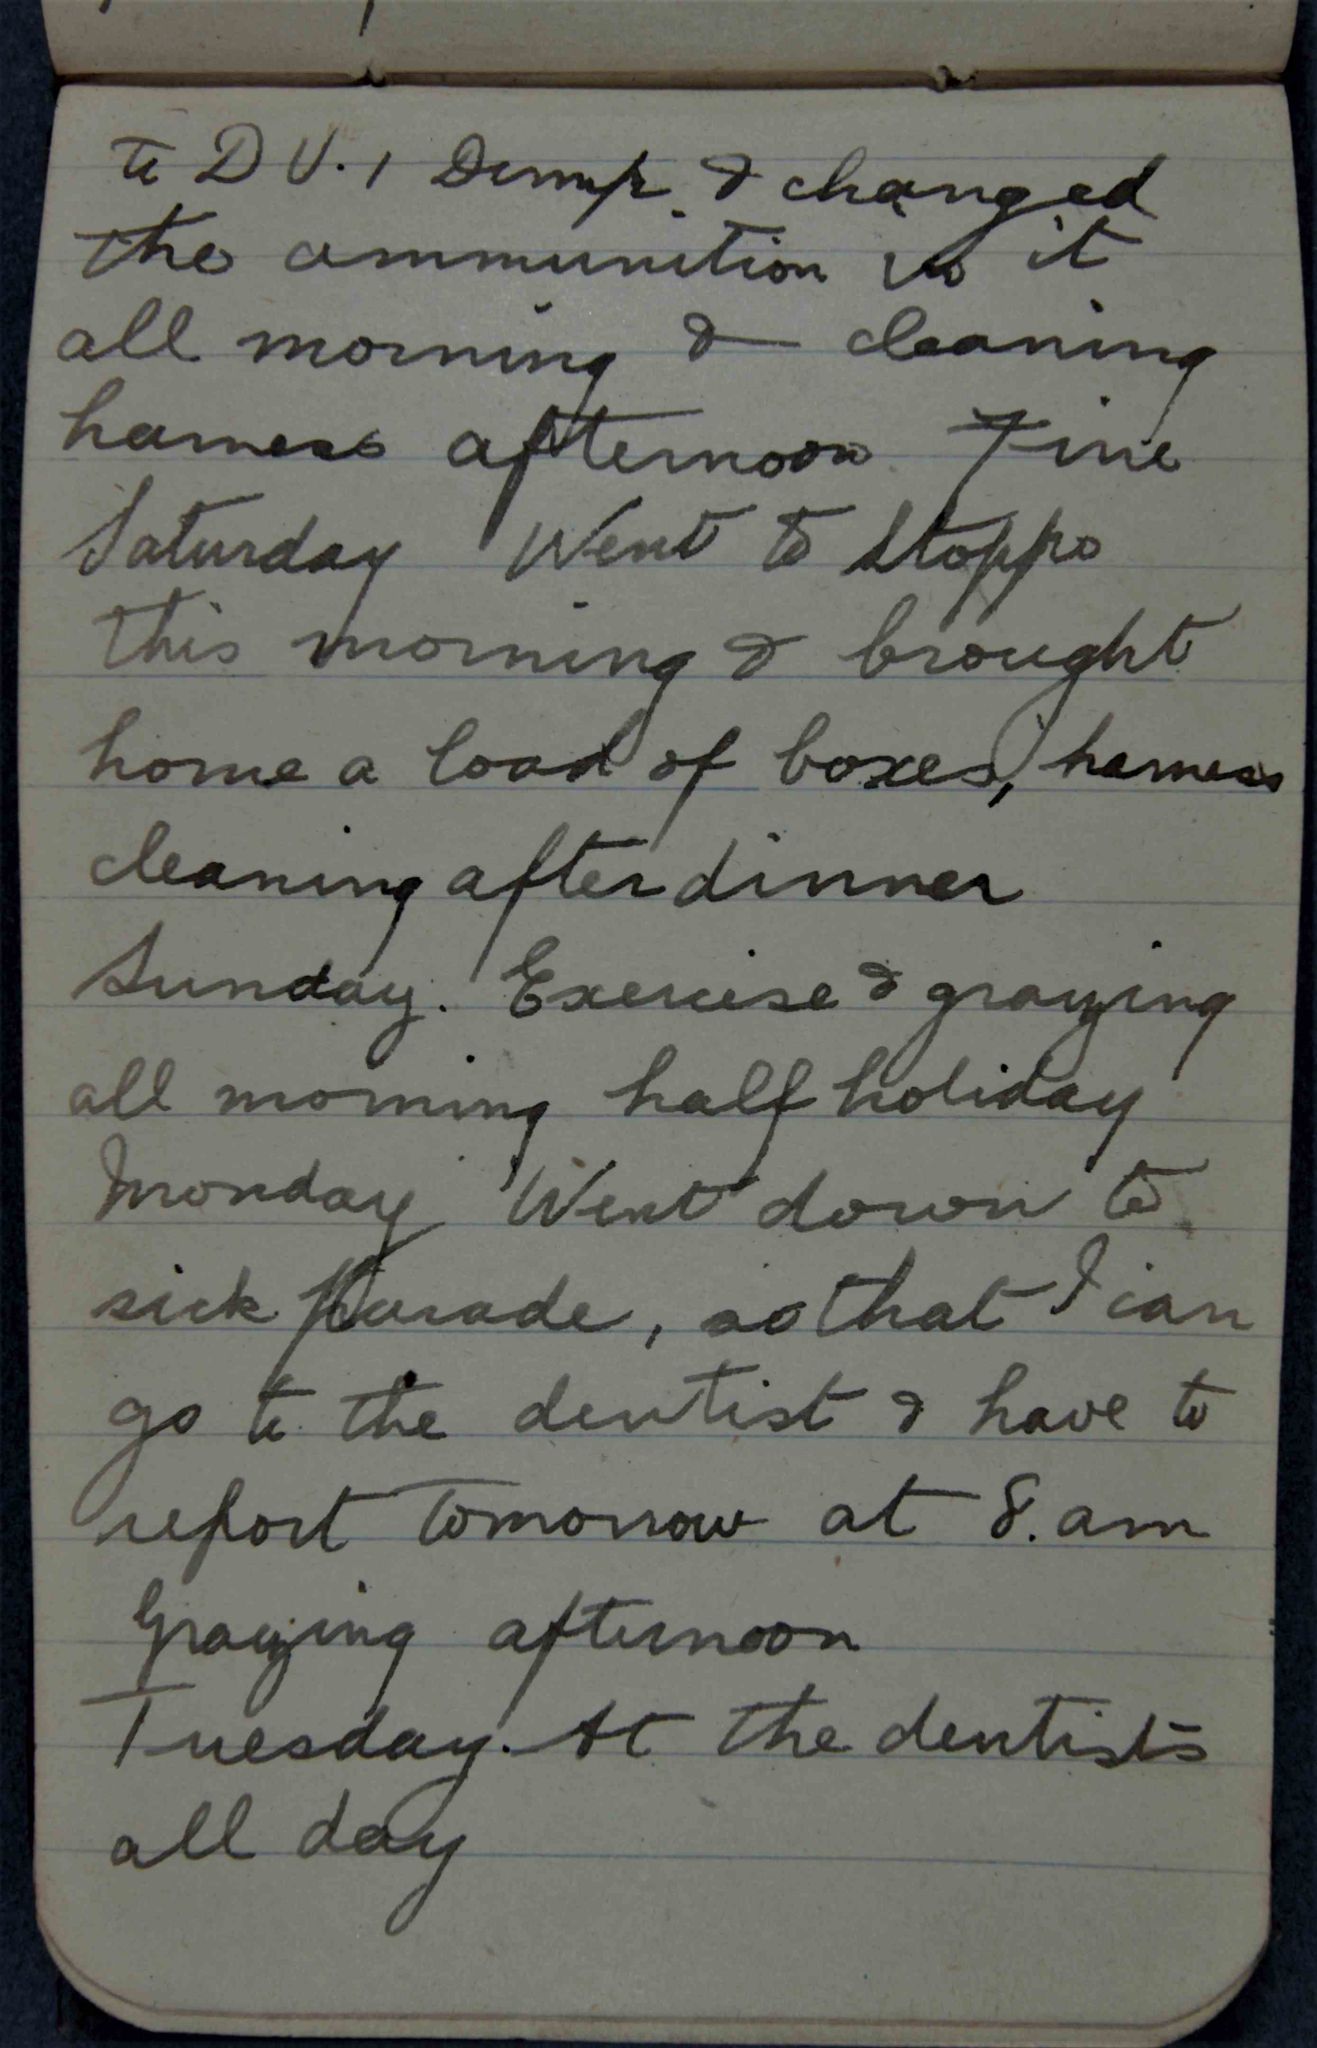 to D V. 1 Dump. & changed
the ammunition in it
all morning & cleaning
harness afternoon Fine
Saturday Went to Stoppo
this morning & brought
home a load of boxes, harness
cleaning after dinner
Sunday. Exercise & grazing
all morning half holiday
Monday Went down to
sick parade, so that I can
go to the dentist & have to
report tomorrow at 8. am
Grazing afternoon
Tuesday. At the dentists
all day